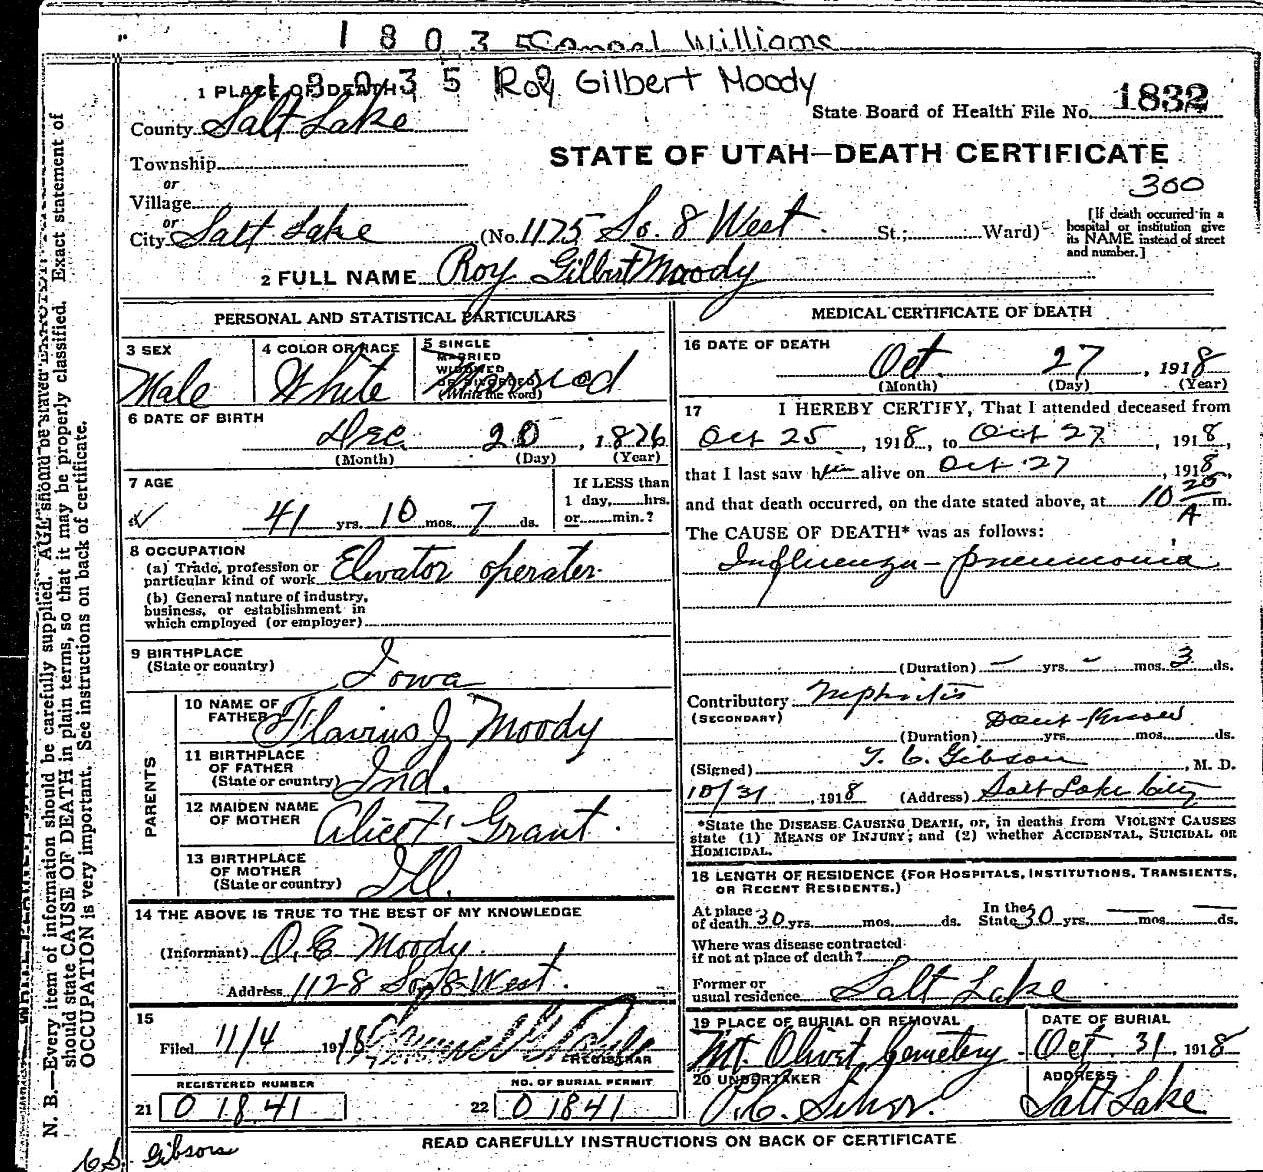 1 8 0 3 5 Williams
1 8 0 3 5 Roy Gilbert Moody
1 PLACE OF DEATH
State Board of Health File No. 1832
County Salt Lake
STATE OF UTAH—DEATH CERTIFICATE
Township
or
300
Village
or
City Salt Lake (No. 1175 So. 8 West. St.; Ward)
[If death occurred in a hospital or institution give its NAME instead of street and number.]
2 FULL NAME Roy Gilbert Moody
PERSONAL AND STATISTICAL PARTICULARS
3 SEX Male
4 COLOR OR RACE White
5 SINGLE
MARRIED
WIDOWED
OR DIVORCED
(Write the word)
Married
6 DATE OF BIRTH
Dec 20, 1876
(Month) (Day) (Year)
7 AGE
41 yrs. 10 mos. 7 ds.
If LESS than
1 day, hrs.
or min.?
8 OCCUPATION
(a) Trade, profession or
particular kind of work Elevator operater
(b) General nature of industry,
business, or establishment in
which employed (or employer)
9 BIRTHPLACE
(State or country)
Iowa
PARENTS
10 NAME OF
FATHER Flavius J Moody
11 BIRTHPLACE
OF FATHER
(State or country) Ind.
12 MAIDEN NAME
OF MOTHER Alice F. Grant.
13 BIRTHPLACE
OF MOTHER
(State or country) Ill.
14 THE ABOVE IS TRUE TO THE BEST OF MY KNOWLEDGE
(Informant) O. C. Moody.
Address 1128 So. 8 West.
15
Filed 11/4 1918
REGISTRAR
REGISTERED NUMBER
21 0 1841
NO. OF BURIAL PERMIT
22 0 1841
MEDICAL CERTIFICATE OF DEATH
16 DATE OF DEATH
Oct. 27, 1918
(Month) (Day) (Year)
17 I HEREBY CERTIFY, That I attended deceased from
Oct 25, 1918, to Oct 27, 1918,
that I last saw him alive on Oct 27, 1918,
and that death occurred, on the date stated above, at 10 20 A m.
The CAUSE OF DEATH* was as follows:
Influenza - pneumonia
(Duration) — yrs. - mos. 3 ds.
Contributory Nephritis
(SECONDARY)
Dont Know
(Duration) yrs. mos. ds.
(Signed) Gibson, M. D.
10/31, 1918 (Address) Salt Lake City
*State the DISEASE CAUSING DEATH, or, in deaths from VIOLENT CAUSES
state (1) MEANS OF INJURY; and (2) whether ACCIDENTAL, SUICIDAL OR
HOMICIDAL.
18 LENGTH OF RESIDENCE (FOR HOSPITALS, INSTITUTIONS, TRANSIENTS,
OR RECENT RESIDENTS.)
At place of death 30 yrs. mos. ds. In the State 30 yrs. — mos. — ds.
Where was disease contracted
if not at place of death?
Former or
usual residence Salt Lake
19 PLACE OF BURIAL OR REMOVAL
Mt. Olivet Cemetery
DATE OF BURIAL
Oct. 31 1918
20 UNDERTAKER
ADDRESS
Salt Lake
READ CAREFULLY INSTRUCTIONS ON BACK OF CERTIFICATE
Gibson
N. B.—Every item of information should be carefully supplied. AGE should be stated EXACTLY.
should state CAUSE OF DEATH in plain terms, so that it may be properly classified. Exact statement of
OCCUPATION is very important. See instructions on back of certificate.